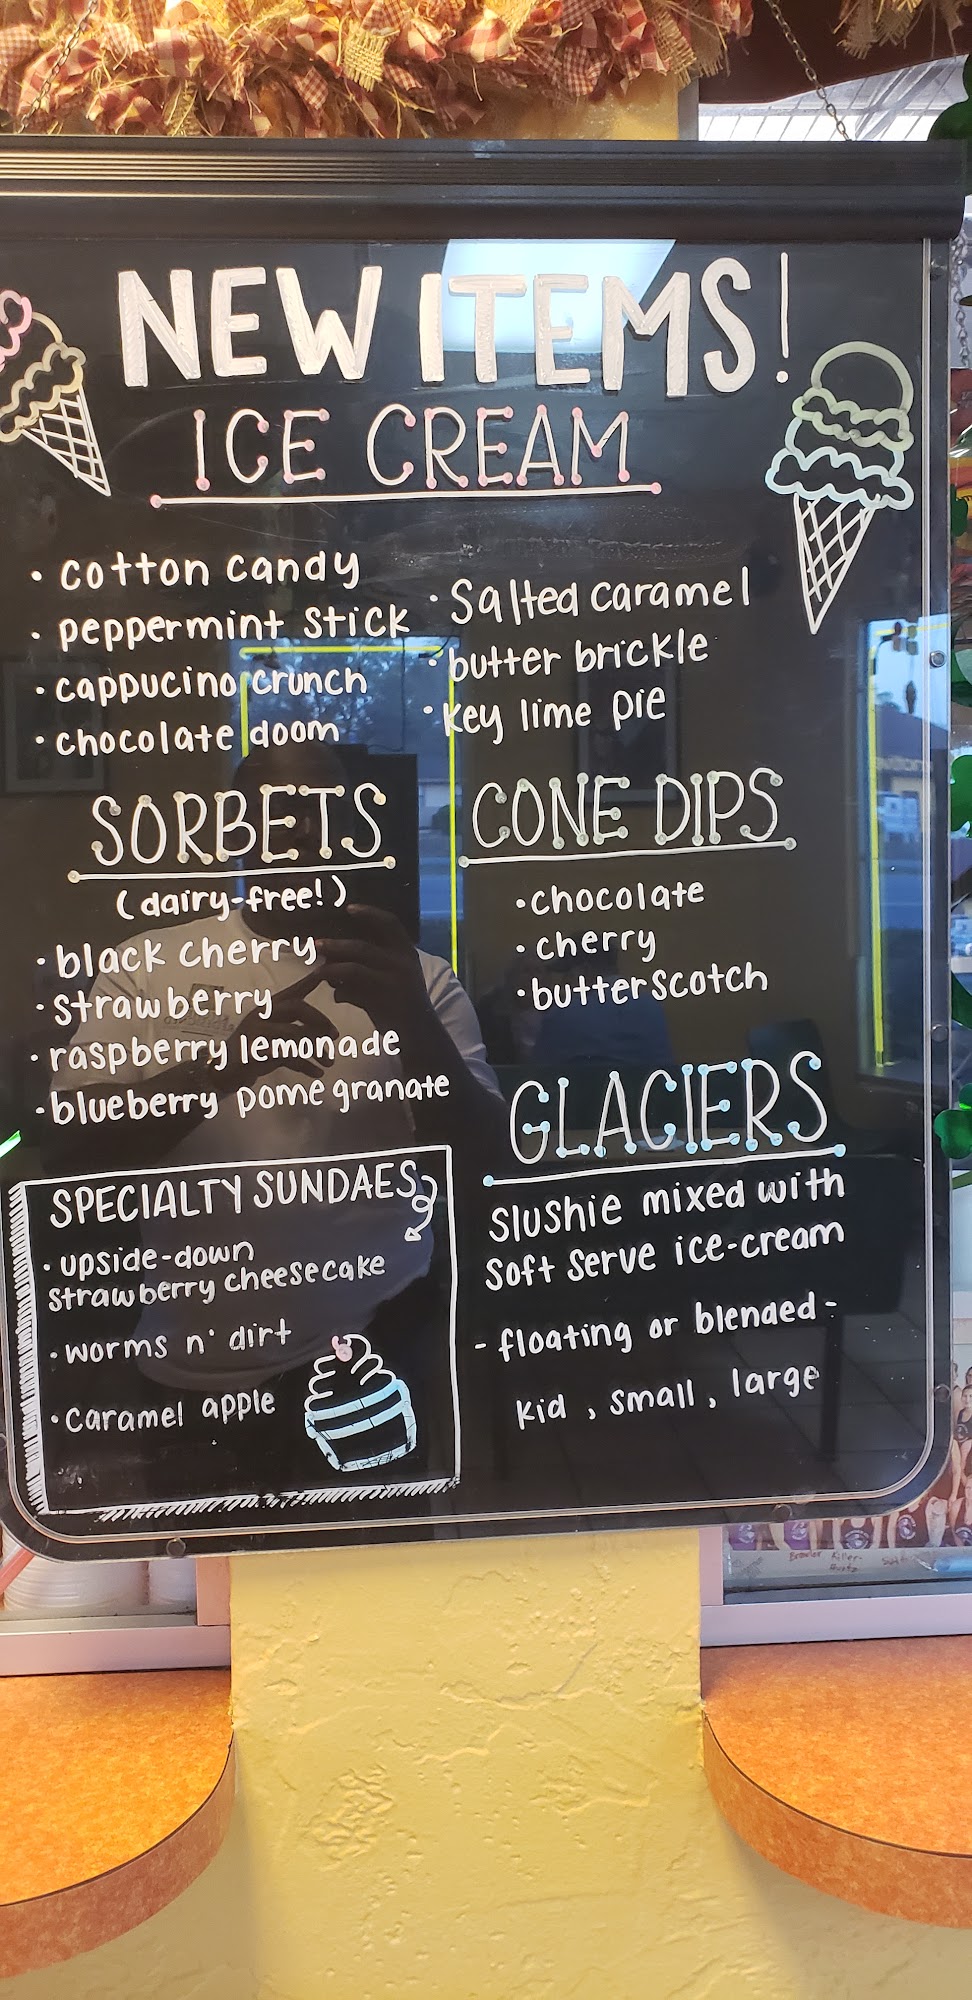 NEW ITEMS!
ICE CREAM
• cotton candy
• peppermint stick
• cappucino crunch
• chocolate doom
• Salted caramel
• butter brickle
• Key lime pie
SORBETS
(dairy-free!)
• black cherry
• strawberry
• raspberry lemonade
• blueberry pomegranate
CONE DIPS
• chocolate
• cherry
• butterscotch
GLACIERS
Slushie mixed with
Soft Serve ice-cream
- floating or blended -
Kid, small, large
SPECIALTY SUNDAES
• upside-down
strawberry cheesecake
• worms n' dirt
• caramel apple